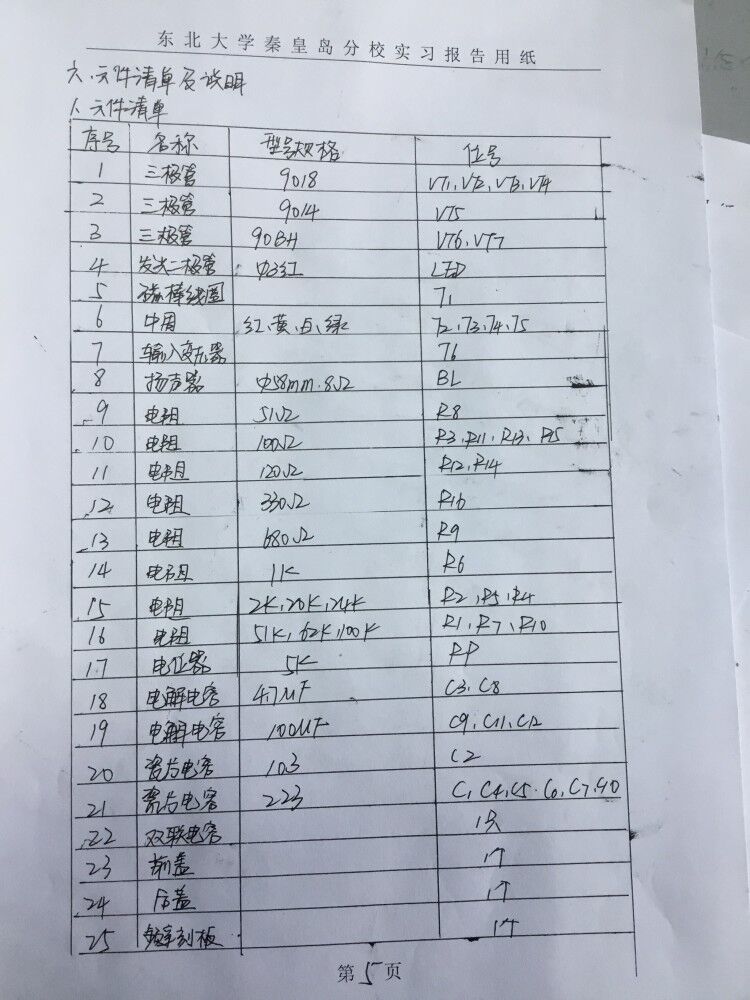 东北大学秦皇岛分校实习报告用纸
六、元件清单及说明
1、元件清单
序号 名称 型号规格 位号
1 三极管 9018 VT1、VT2、VT3、VT4
2 三极管 9014 VT5
3 三极管 9013H VT6、VT7
4 发光二极管 Φ3红 LED
5 磁棒线圈 T1
6 中周 红、黄、白、绿 T2、T3、T4、T5
7 输入变压器 T6
8 扬声器 Φ58mm.8Ω BL
9 电阻 51Ω R8
10 电阻 100Ω R3、R11、R13、R15
11 电阻 120Ω R12、R14
12 电阻 330Ω R16
13 电阻 680Ω R9
14 电阻 1K R6
15 电阻 2K、20K、24K R2、R5、R4
16 电阻 51K、62K、100K R1、R7、R10
17 电位器 5K RP
18 电解电容 4.7μF C3、C8
19 电解电容 100μF C9、C11、C12
20 瓷片电容 103 C2
21 瓷片电容 223 C1、C4、C5、C6、C7、C10
22 双联电容 1只
23 前盖 1个
24 后盖 1个
25 频率刻板 1个
第5页